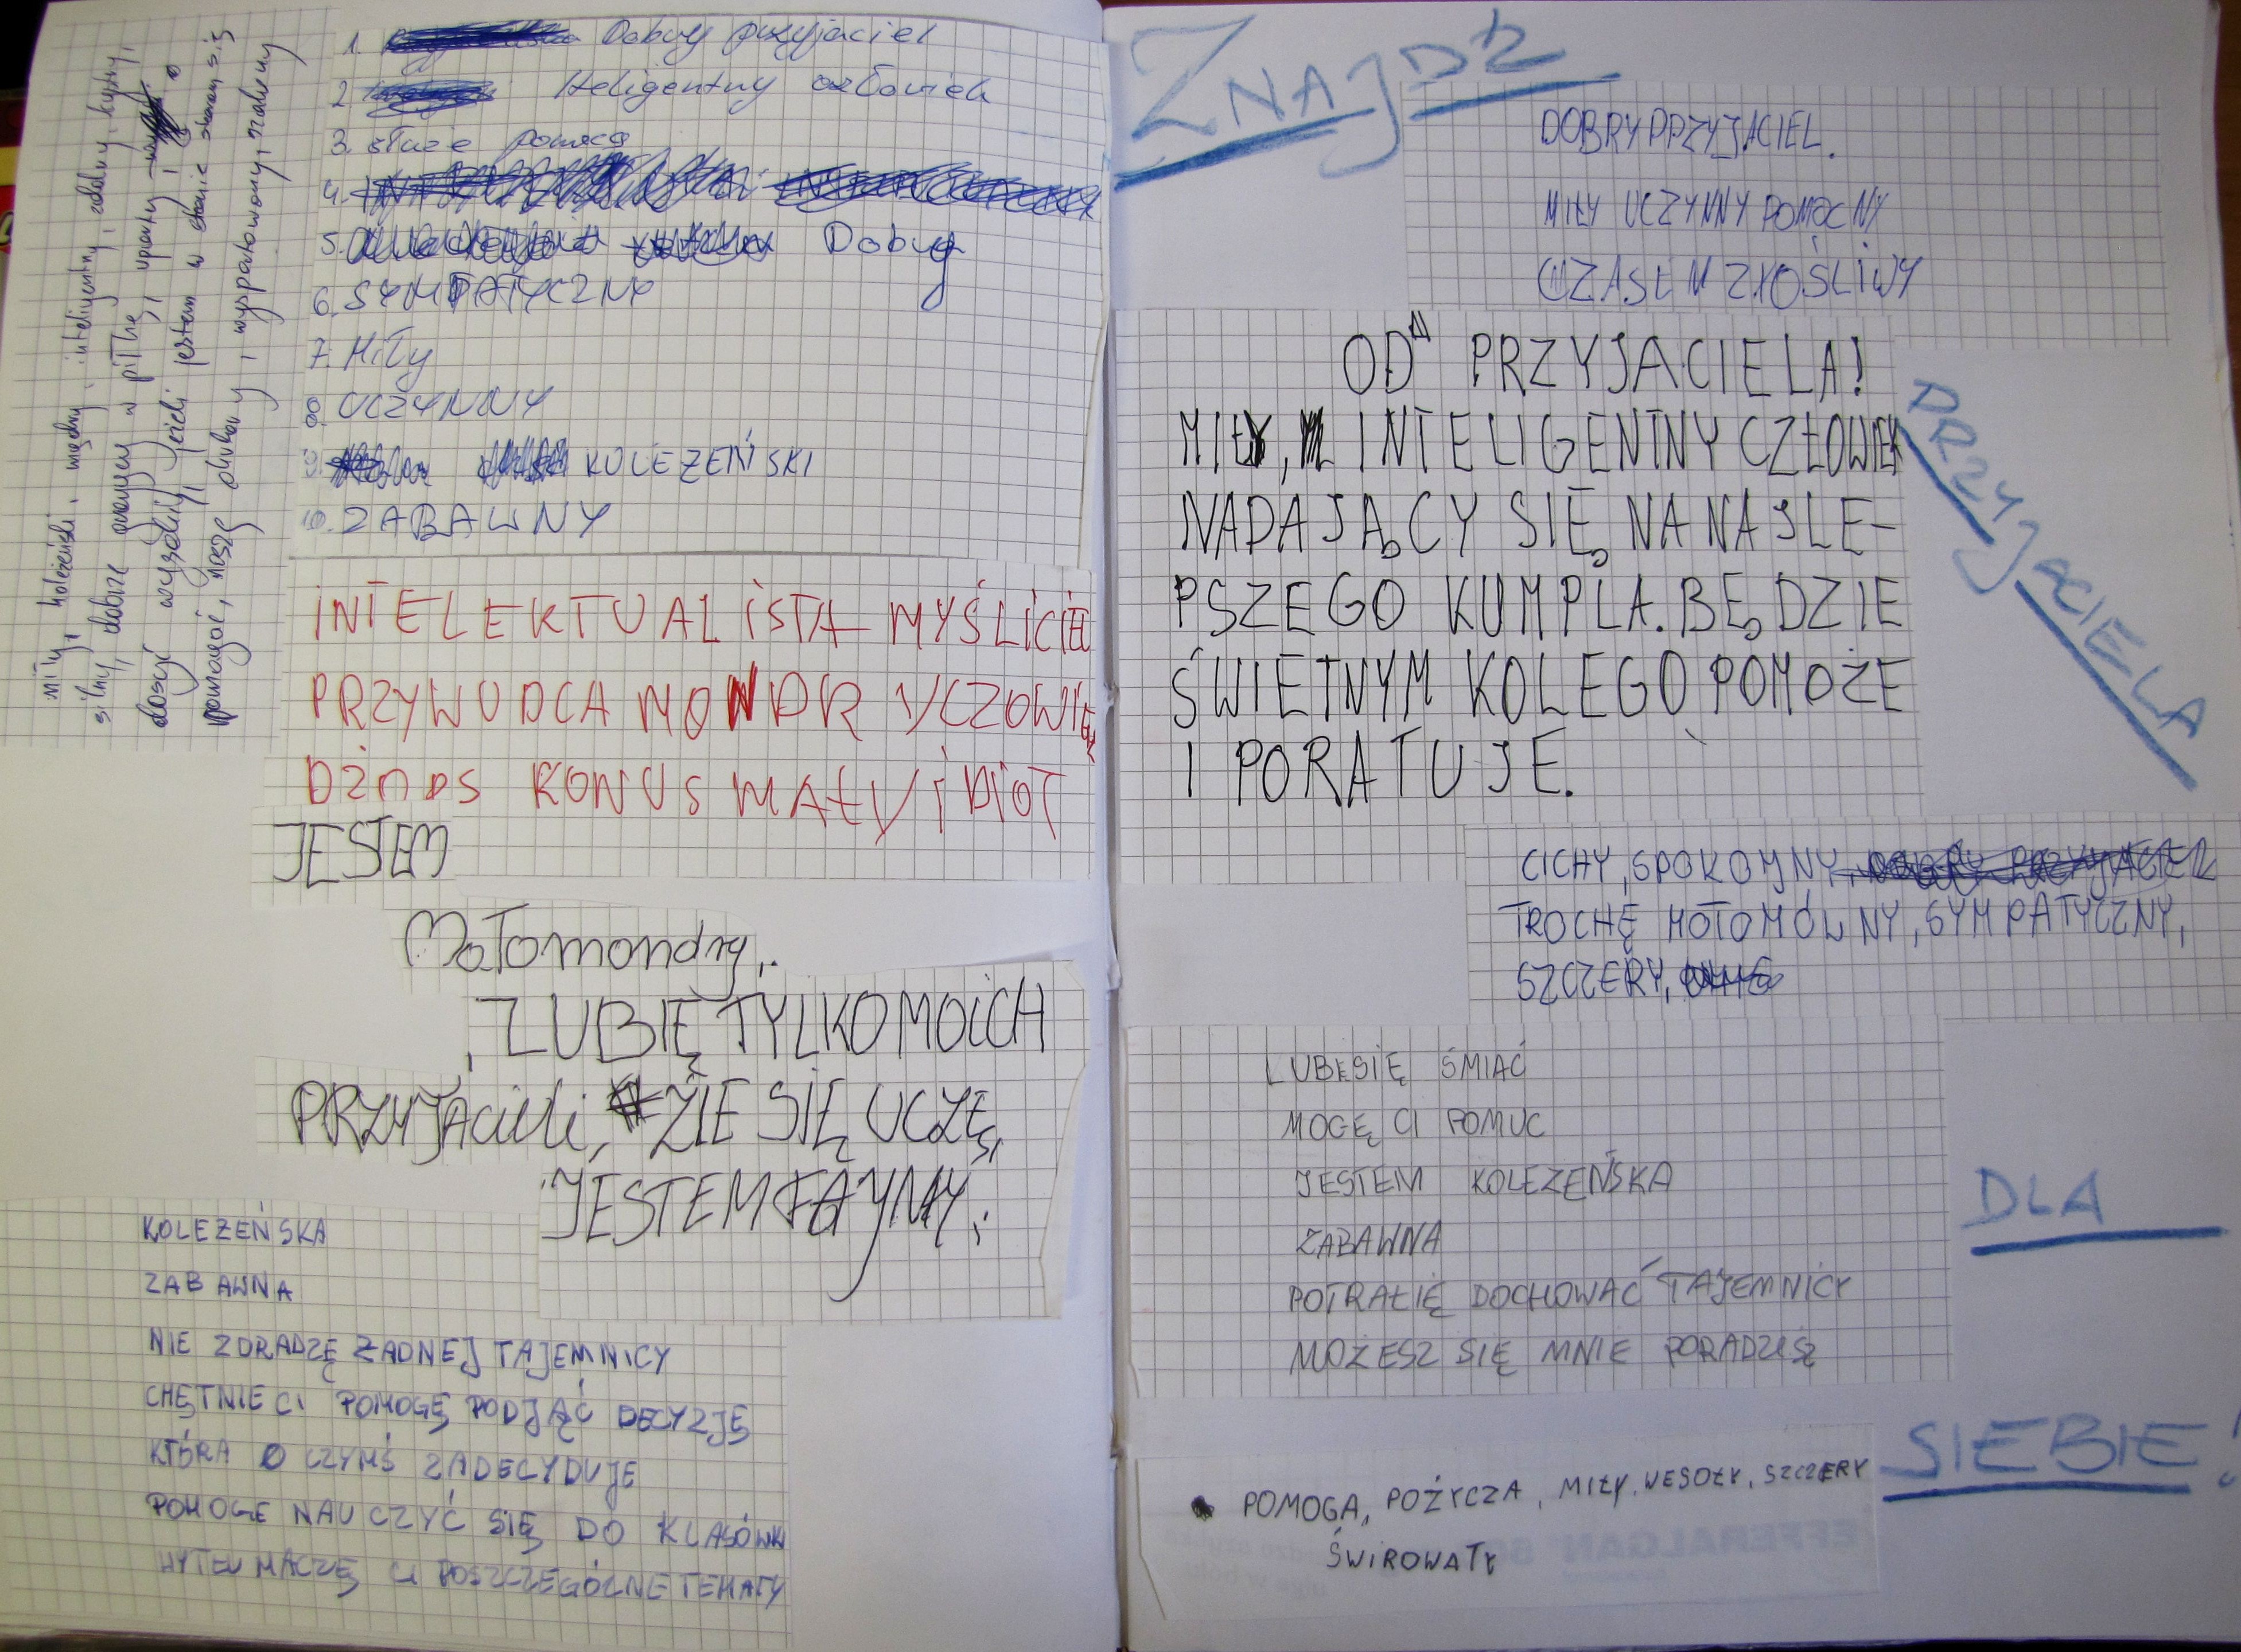 miły, koleżeński, mądry, inteligentny, zdolny, bystry,
silny, dobrze grający w piłkę, uparty,
dosyć wysoki, jeżeli jestem w stanie staram się
pomagać, noszę okulary, wysportowany, szalony
1. Dobry przyjaciel
2. Iteligentny człowiek
3. służe pomocą
4.
5. Dobry
6. SYMPATYCZNY
7. Miły
8. UCZYNNY
9. KOLEŻEŃSKI
10. ZABAWNY
INTELEKTUALiSTA MYŚLiCiEL
PRZYWUDCA MONDR YCZOWIEK
DŻDDS KONUS MAŁY iDiOT
JESTEM
Małomondry,
ZUBIĘ TYLKO MOiCH
PRZYJACieli, ZIE SIĘ UCZĘ,
JESTEM FAJNY,
KOLEŻEŃSKA
ZABAWNA
NIE ZDRADZĘ ŻADNEJ TAJEMNICY
CHĘTNIE CI POMOGĘ PODJĄĆ DECYZJĘ
KTÓRA O CZYMŚ ZADECYDUJE
POMOGE NAUCZYĆ SIĘ DO KLASÓWKI
WYTŁUMACZĘ CI POSZCZEGÓLNE TEMATY
ZNAJDŹ
DOBRY PPZYJACIEL.
MIŁY UCZYNNY POMOCNY
CZASEM ZŁOŚLIWY
OD PRZYJACIELA!
MIŁY, INTELIGENTNY CZŁOWIEK
NADAJĄCY SIĘ NA NAJLE-
PSZEGO KUMPLA. BĘDZIE
ŚWIETNYM KOLEGO POMOŻE
I PORATUJE.
PRZYJACIELA
CICHY, SPOKOJNY,
TROCHĘ MOŁOMÓWNY, SYMPATYCZNY,
SZCZERY,
LUBĘ SIĘ ŚMIAĆ
MOGĘ CI POMUC
JESTEM KOLEŻEŃSKA
ZABAWNA
POTRAFIĘ DOCHOWAĆ TAJEMNICY
MOŻESZ SIĘ MNIE PORADZIŚ
DLA
POMOGA, POŻYCZA, MIŁY, WESOŁY, SZCZERY
ŚWIROWATY
SIEBIE!